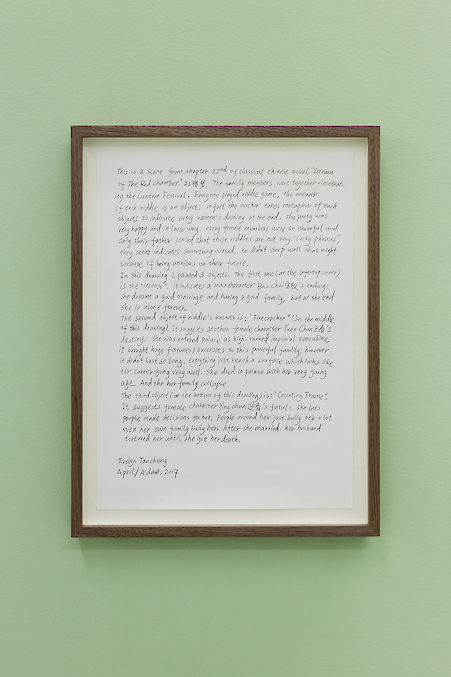 This is a scene from chapter 22nd of classical chinese novel "Dream
of The Red chamber." 红楼梦. The family members were together celebrat-
ing the Lantern Festival. Everyone played riddle game, the answer
of each riddle is an object: in fact the author takes metaphor of each
objects to indicate every women's destiny at the end. The party was
very happy and it last long. every family members were so cheerful and
only their father sensed that those riddles are not very "lucky phrases",
they indicates something cursed, he didn't sleep well that night
because of being anxious on their future.
In this drawing I painted 3 objects. The first one (at the left top corner)
is the "incense". It indicates a main character Bao Chai 宝钗's ending:
she dreamt a good marriage and having a god family, but at the end
she is alone forever.
The second object of riddle's answer is: "Firecracker" (In the middle
of this drawing). It suggests another female character Yuan Chun 元春's
destiny. She was entered palace as high-ranked imperial concubine,
it brought huge features/successes to this powerful family; however
it didn't last so long. Everything just reach a surface which looks like
her career going very well. She died in palace with her very young
age. And the her family collapse.
The third object (on the bottom of this drawing) is: "Counting Frame".
It suggests female character Ying chun 迎春's fatal: she lets
people made decisions to her. People around her just bully her a lot
even her own family bully her. After she married, her husband
tortured her until she got her death.
Evelyn Taocheng
April/A'dam, 2017